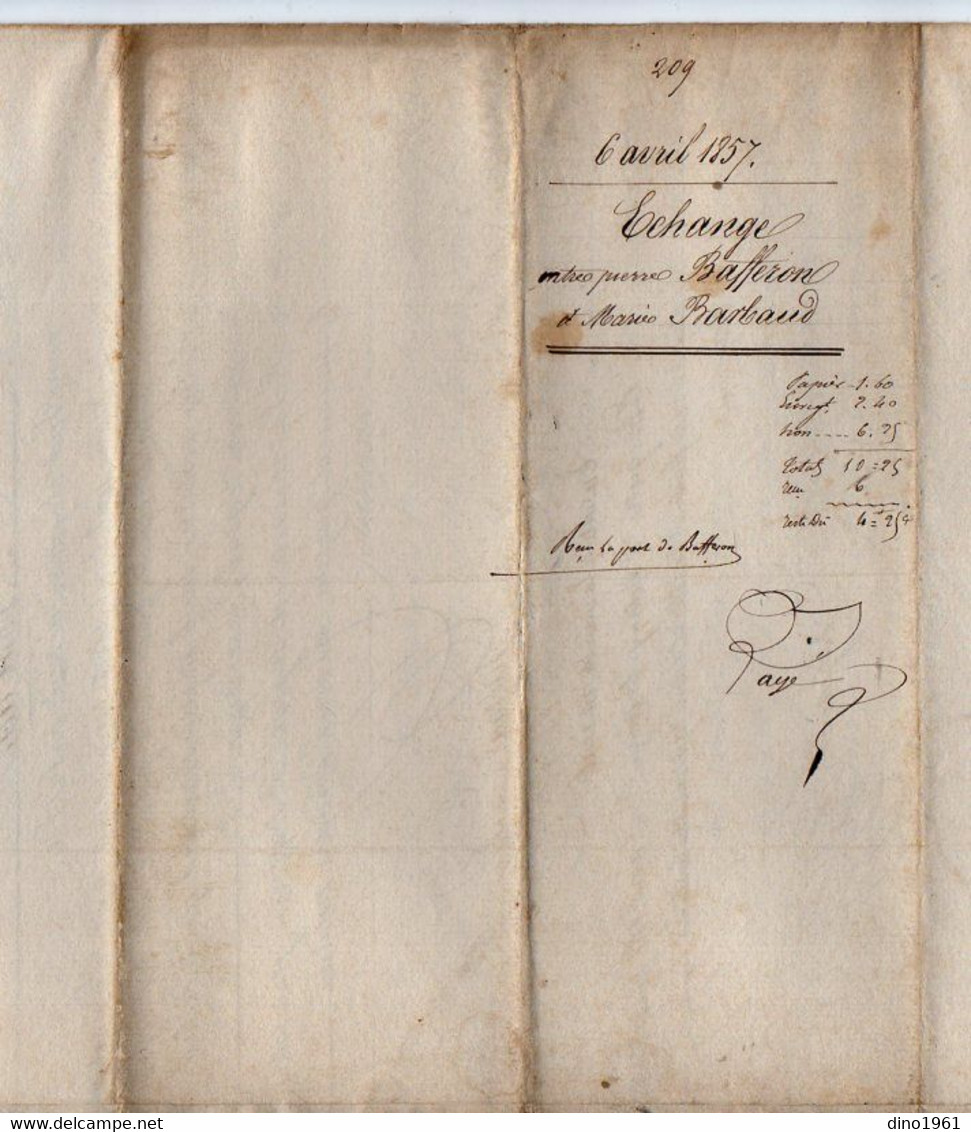 209
6 avril 1857.
Echange
entre pierre Bafferon
et Marie Barbaud
Papier 1.60
Enregt. 2.40
hon..... 6.25
Total 10=25
reçu 6
reste Dû 4=25
Reçu la part de Bafferon
Payé
dino1961